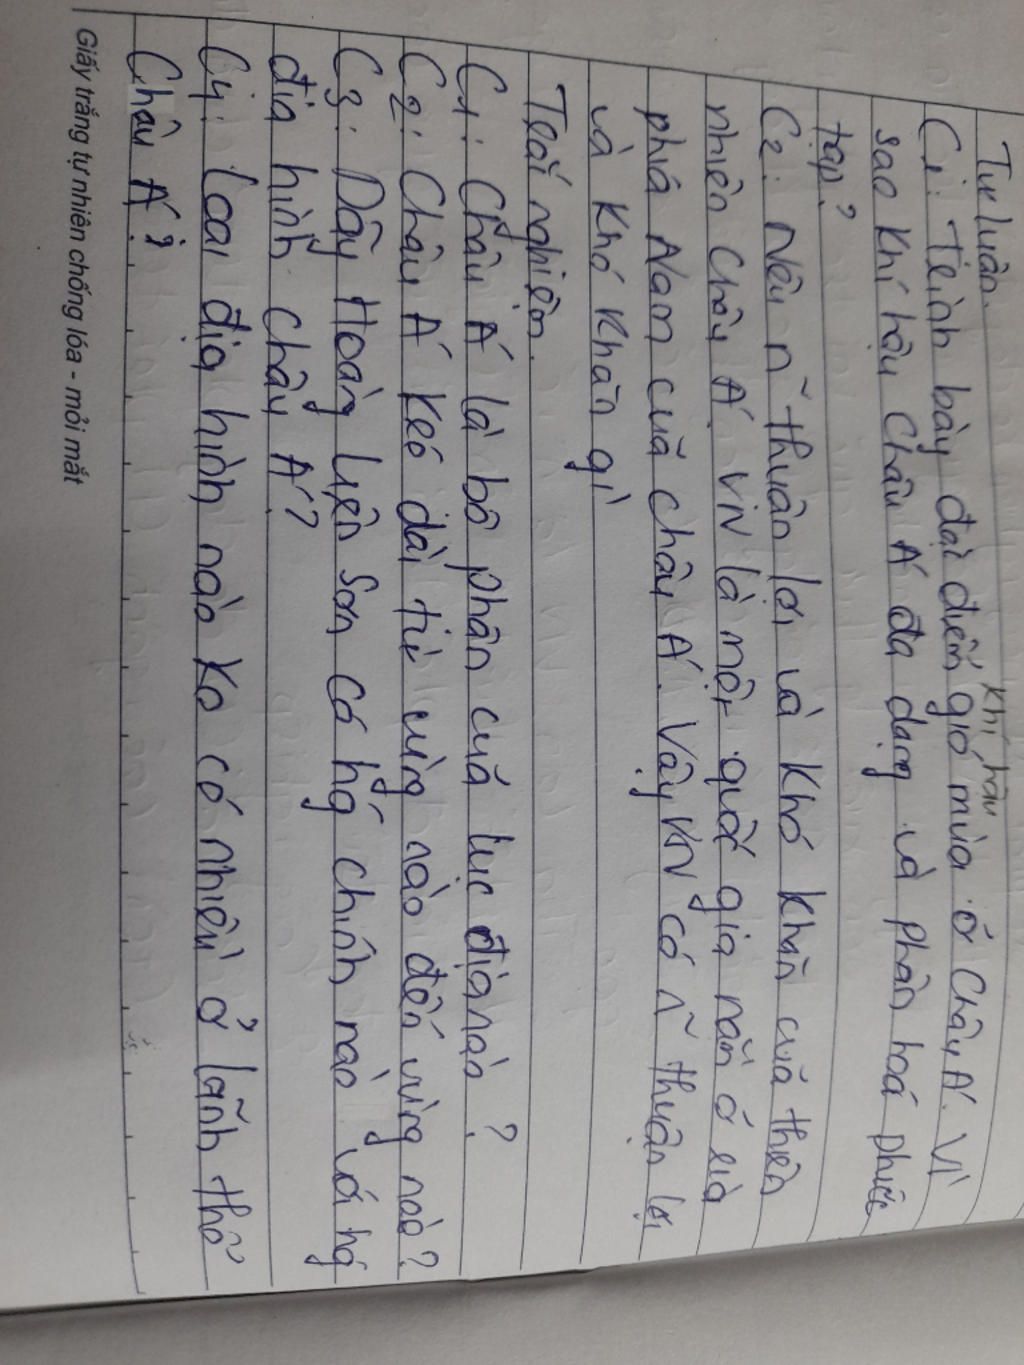 Tự luận.
C1: Trình bày đặc điểm khí hậu gió mùa ở Châu Á. Vì
sao khí hậu Châu Á đa dạng và phân hoá phức
tạp?
C2: Nêu n~ thuận lợi và khó khăn của thiên
nhiên Châu Á. VN là một quốc gia nằm ở
phía Nam của châu Á. Vậy VN có n~ thuận lợi
và khó khăn gì
Trắc nghiệm.
C1: Châu Á là bộ phận của lục địa nào?
C2: Châu Á kéo dài từ vùng nào đến vùng nào?
C3: Dãy Hoàng Liên Sơn có hg chính nào với hg
địa hình châu Á?
C4: Loại địa hình nào ko có nhiều ở lãnh thổ
Châu Á?
Giấy trắng tự nhiên chống lóa - mỏi mắt